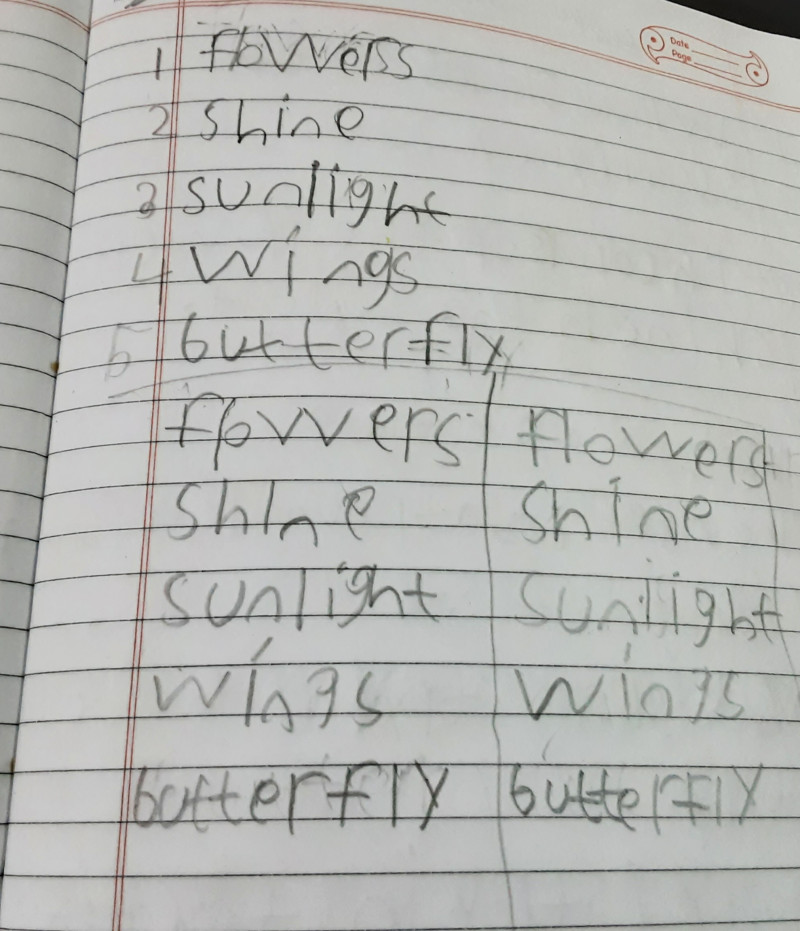 Date
Page
1 flowers
2 shine
3 sunlight
4 wings
5 butterfly
flowers flowers
shine shine
sunlight sunlight
wings wings
butterfly butterfly